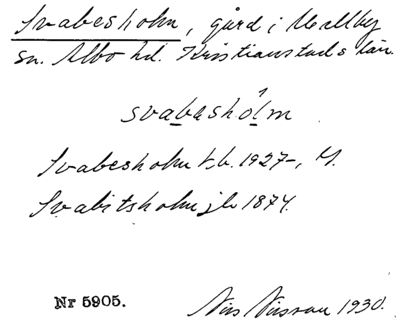 Svabesholm, gård i Mellby
sn. Albo hd. Kristianstads län.
svabesholm
Svabesholm kb. 1927–, M.
Svabitsholm jb 1874.
Nr 5905.
Nils Nilsson 1930.